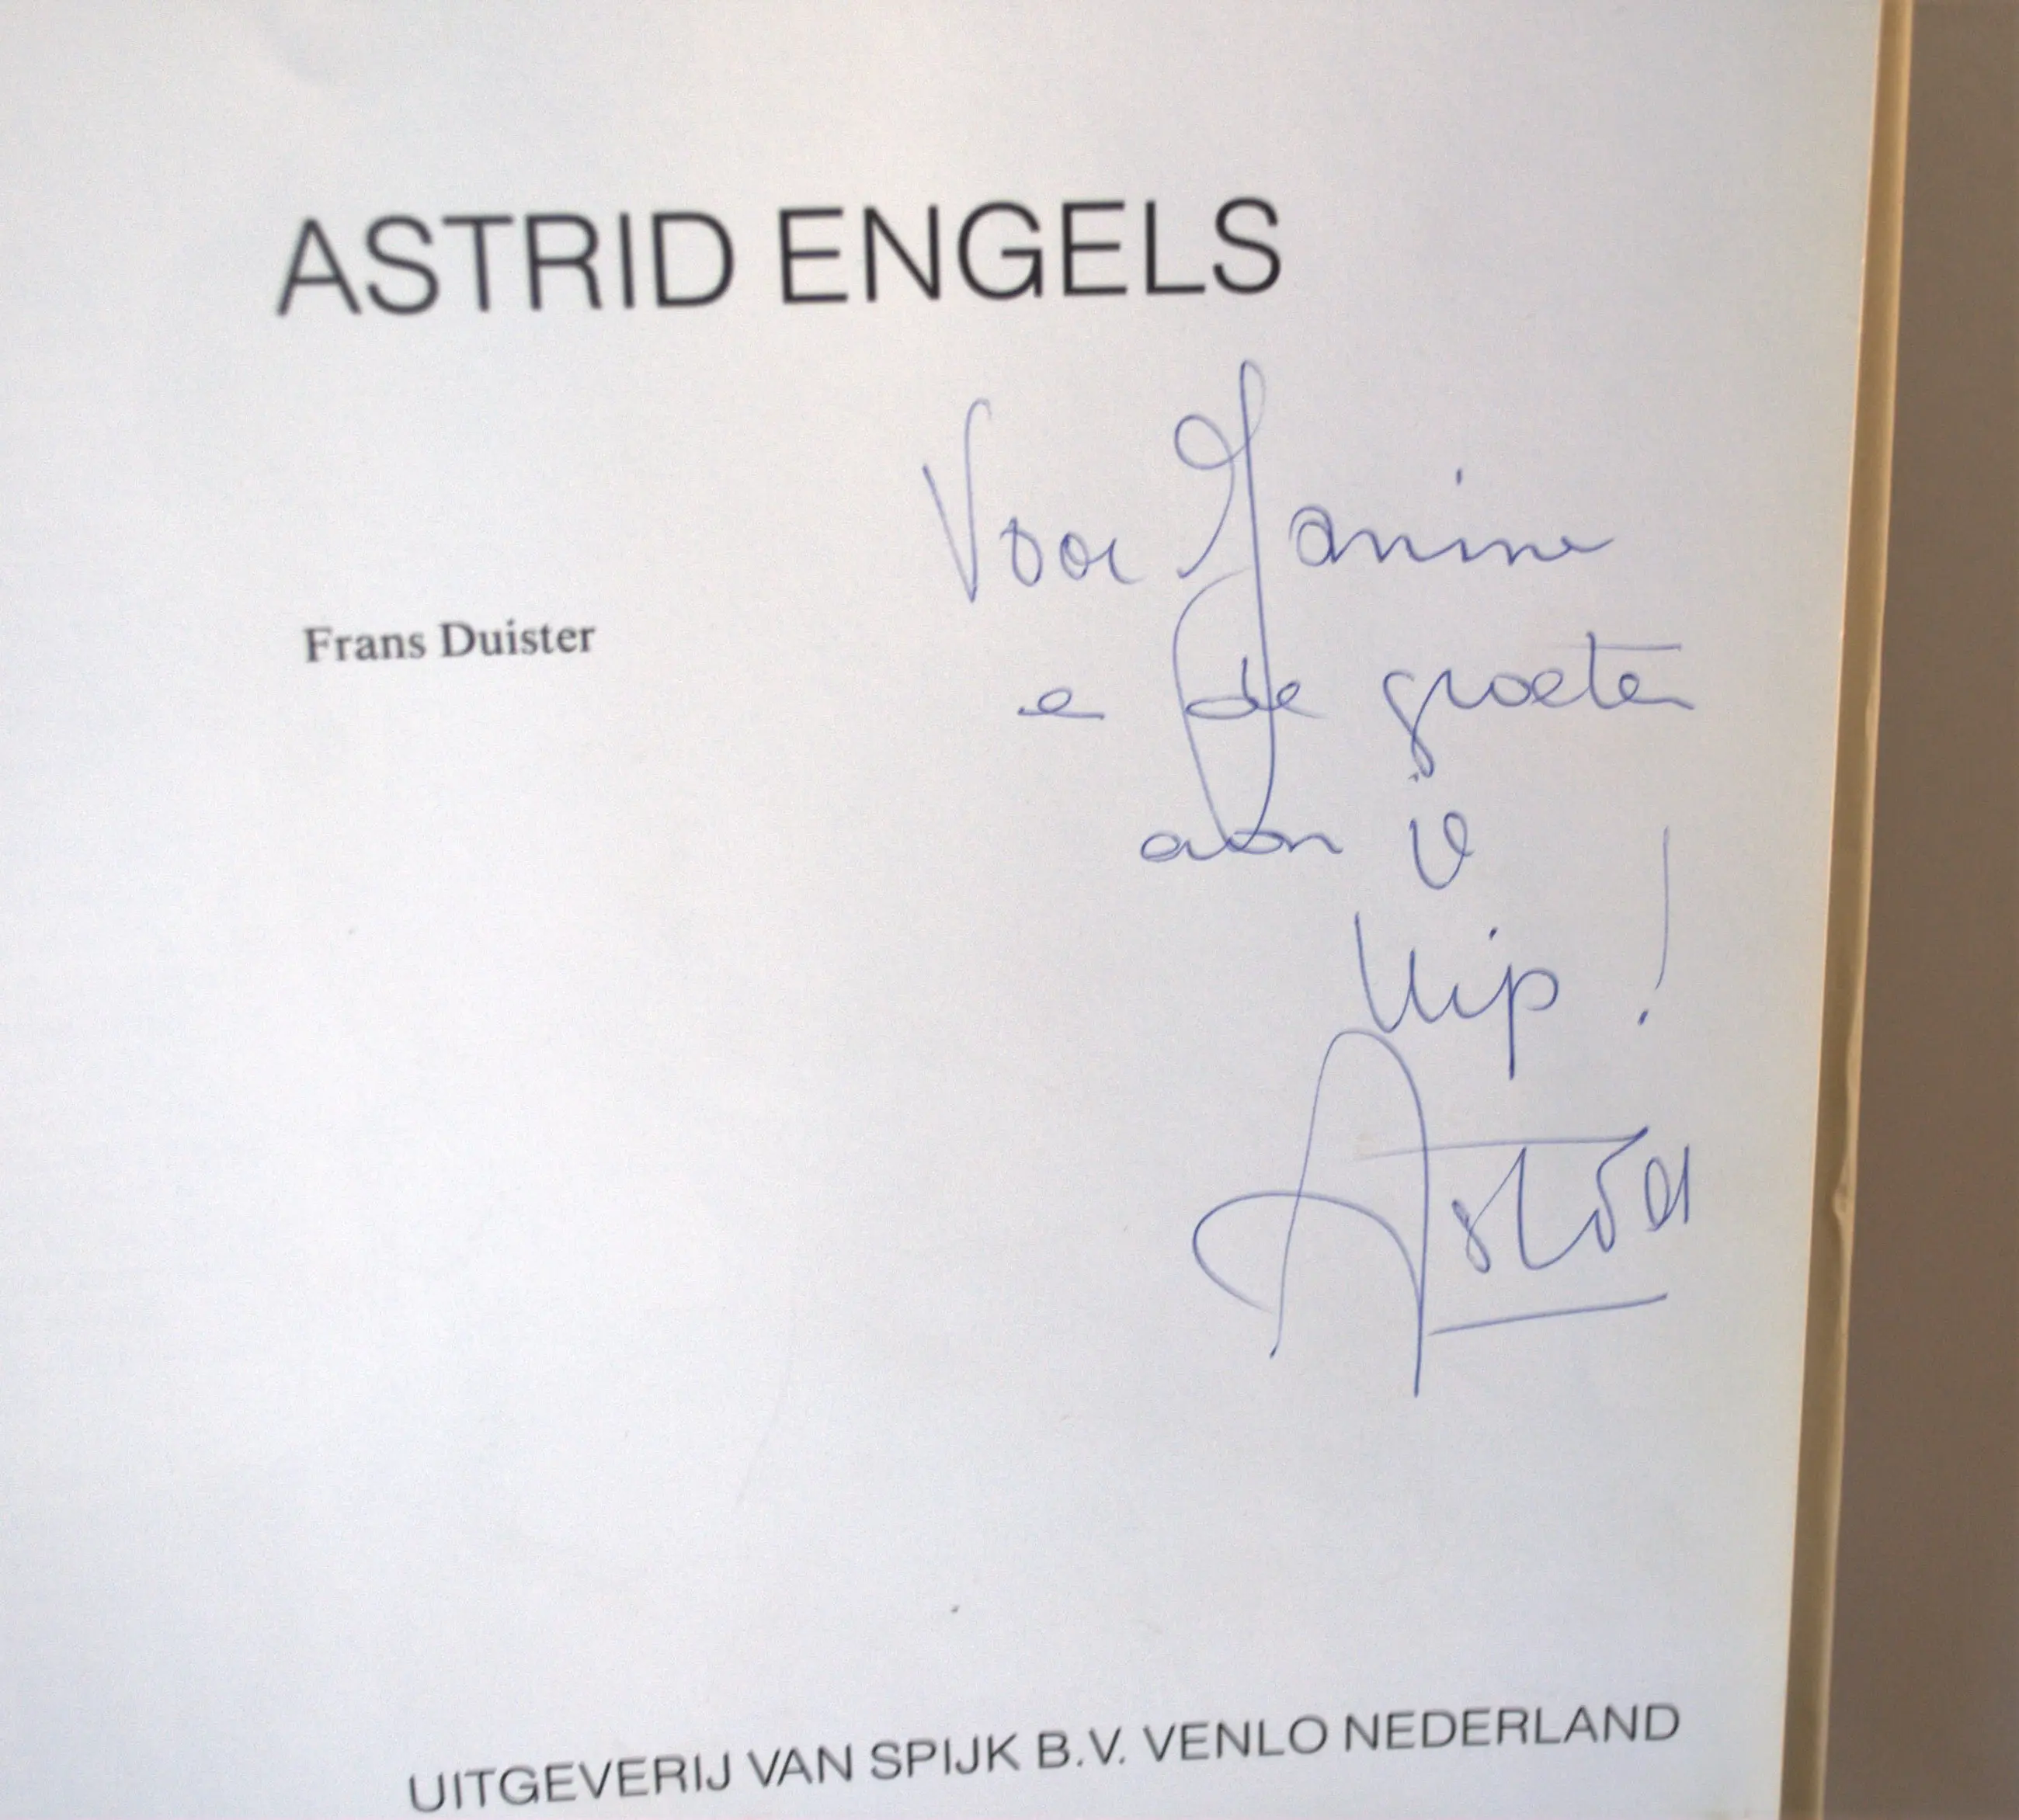 ASTRID ENGELS
Voor Janine
Frans Duister
e de groeten
aan
Astrid
UITGEVERIJ VAN SPIJK B.V. VENLO NEDERLAND